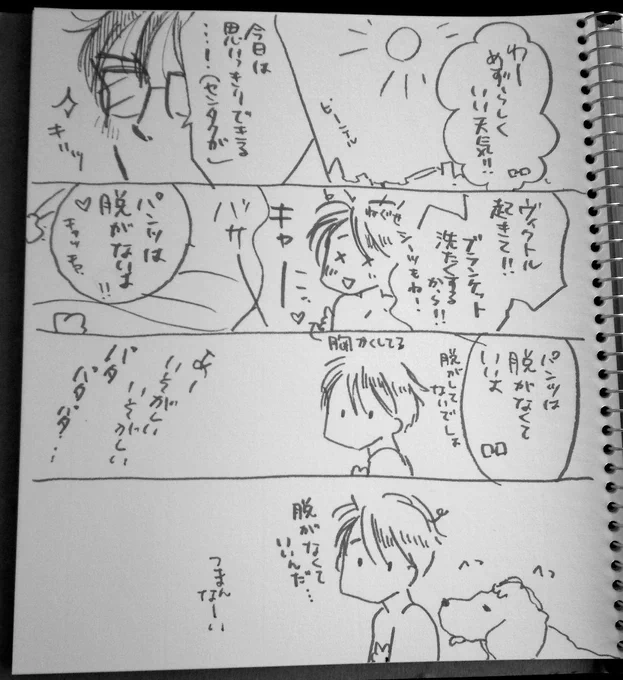 わー
めずらしく
いい天気!!
ピーカン
今日は
思いっきりできる
…!(センタクが)
キッッ
ヴィクトル
起きて!!
ブランケット
洗たくする
から!!
シーツもね!
ねぐせ
キャーーッッ♡
バサ
パンツは
脱がないよ
♡キャッキャ!!
パンツは
脱がなくて
いいよ
脱がして
ないでしょ
胸かくしてる
いそがしい
いそがしい
バタ
バタバタ…
脱がなくて
いいんだ…
つまん
なーい
へっ
へっ